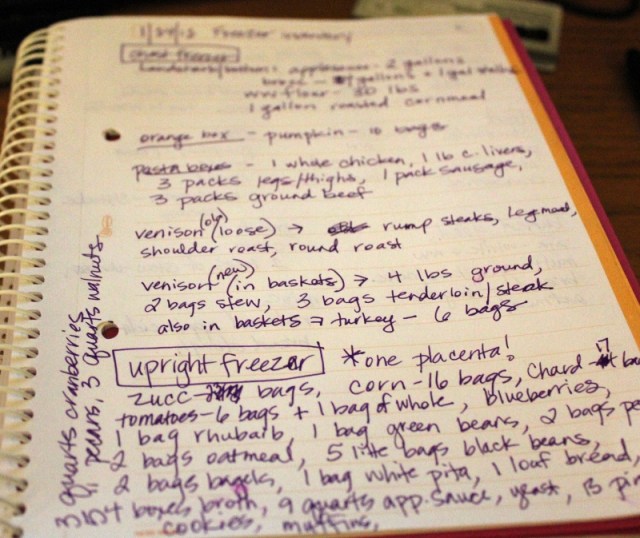 Freezer inventory
chest freezer
applesauce - 2 gallons
gallons + 1 gal
flour - 30 lbs
1 gallon roasted cornmeal
orange box - pumpkin - 10 bags
pasta boxes - 1 whole chicken, 1 lb c. livers,
3 packs legs/thighs, 1 pack sausage,
3 packs ground beef
venison (old) (loose) → rump steaks, leg meat,
shoulder roast, round roast
venison (new) (in baskets) → 4 lbs ground,
2 bags stew, 3 bags tenderloin/steak
also in baskets → turkey - 6 bags
upright freezer *one placenta!
zucc- bags, corn-16 bags, chard - 7
tomatoes-6 bags + 1 bag of whole, blueberries,
1 bag rhubarb, 1 bag green beans, 2 bags
2 bags oatmeal, 5 little bags black beans,
2 bags bagels, 1 bag white pita, 1 loaf bread,
4 boxes broth, 9 quarts app. sauce, yeast, 13
cookies, muffins,
3 quarts cranberries
" pears, 3 quarts walnuts